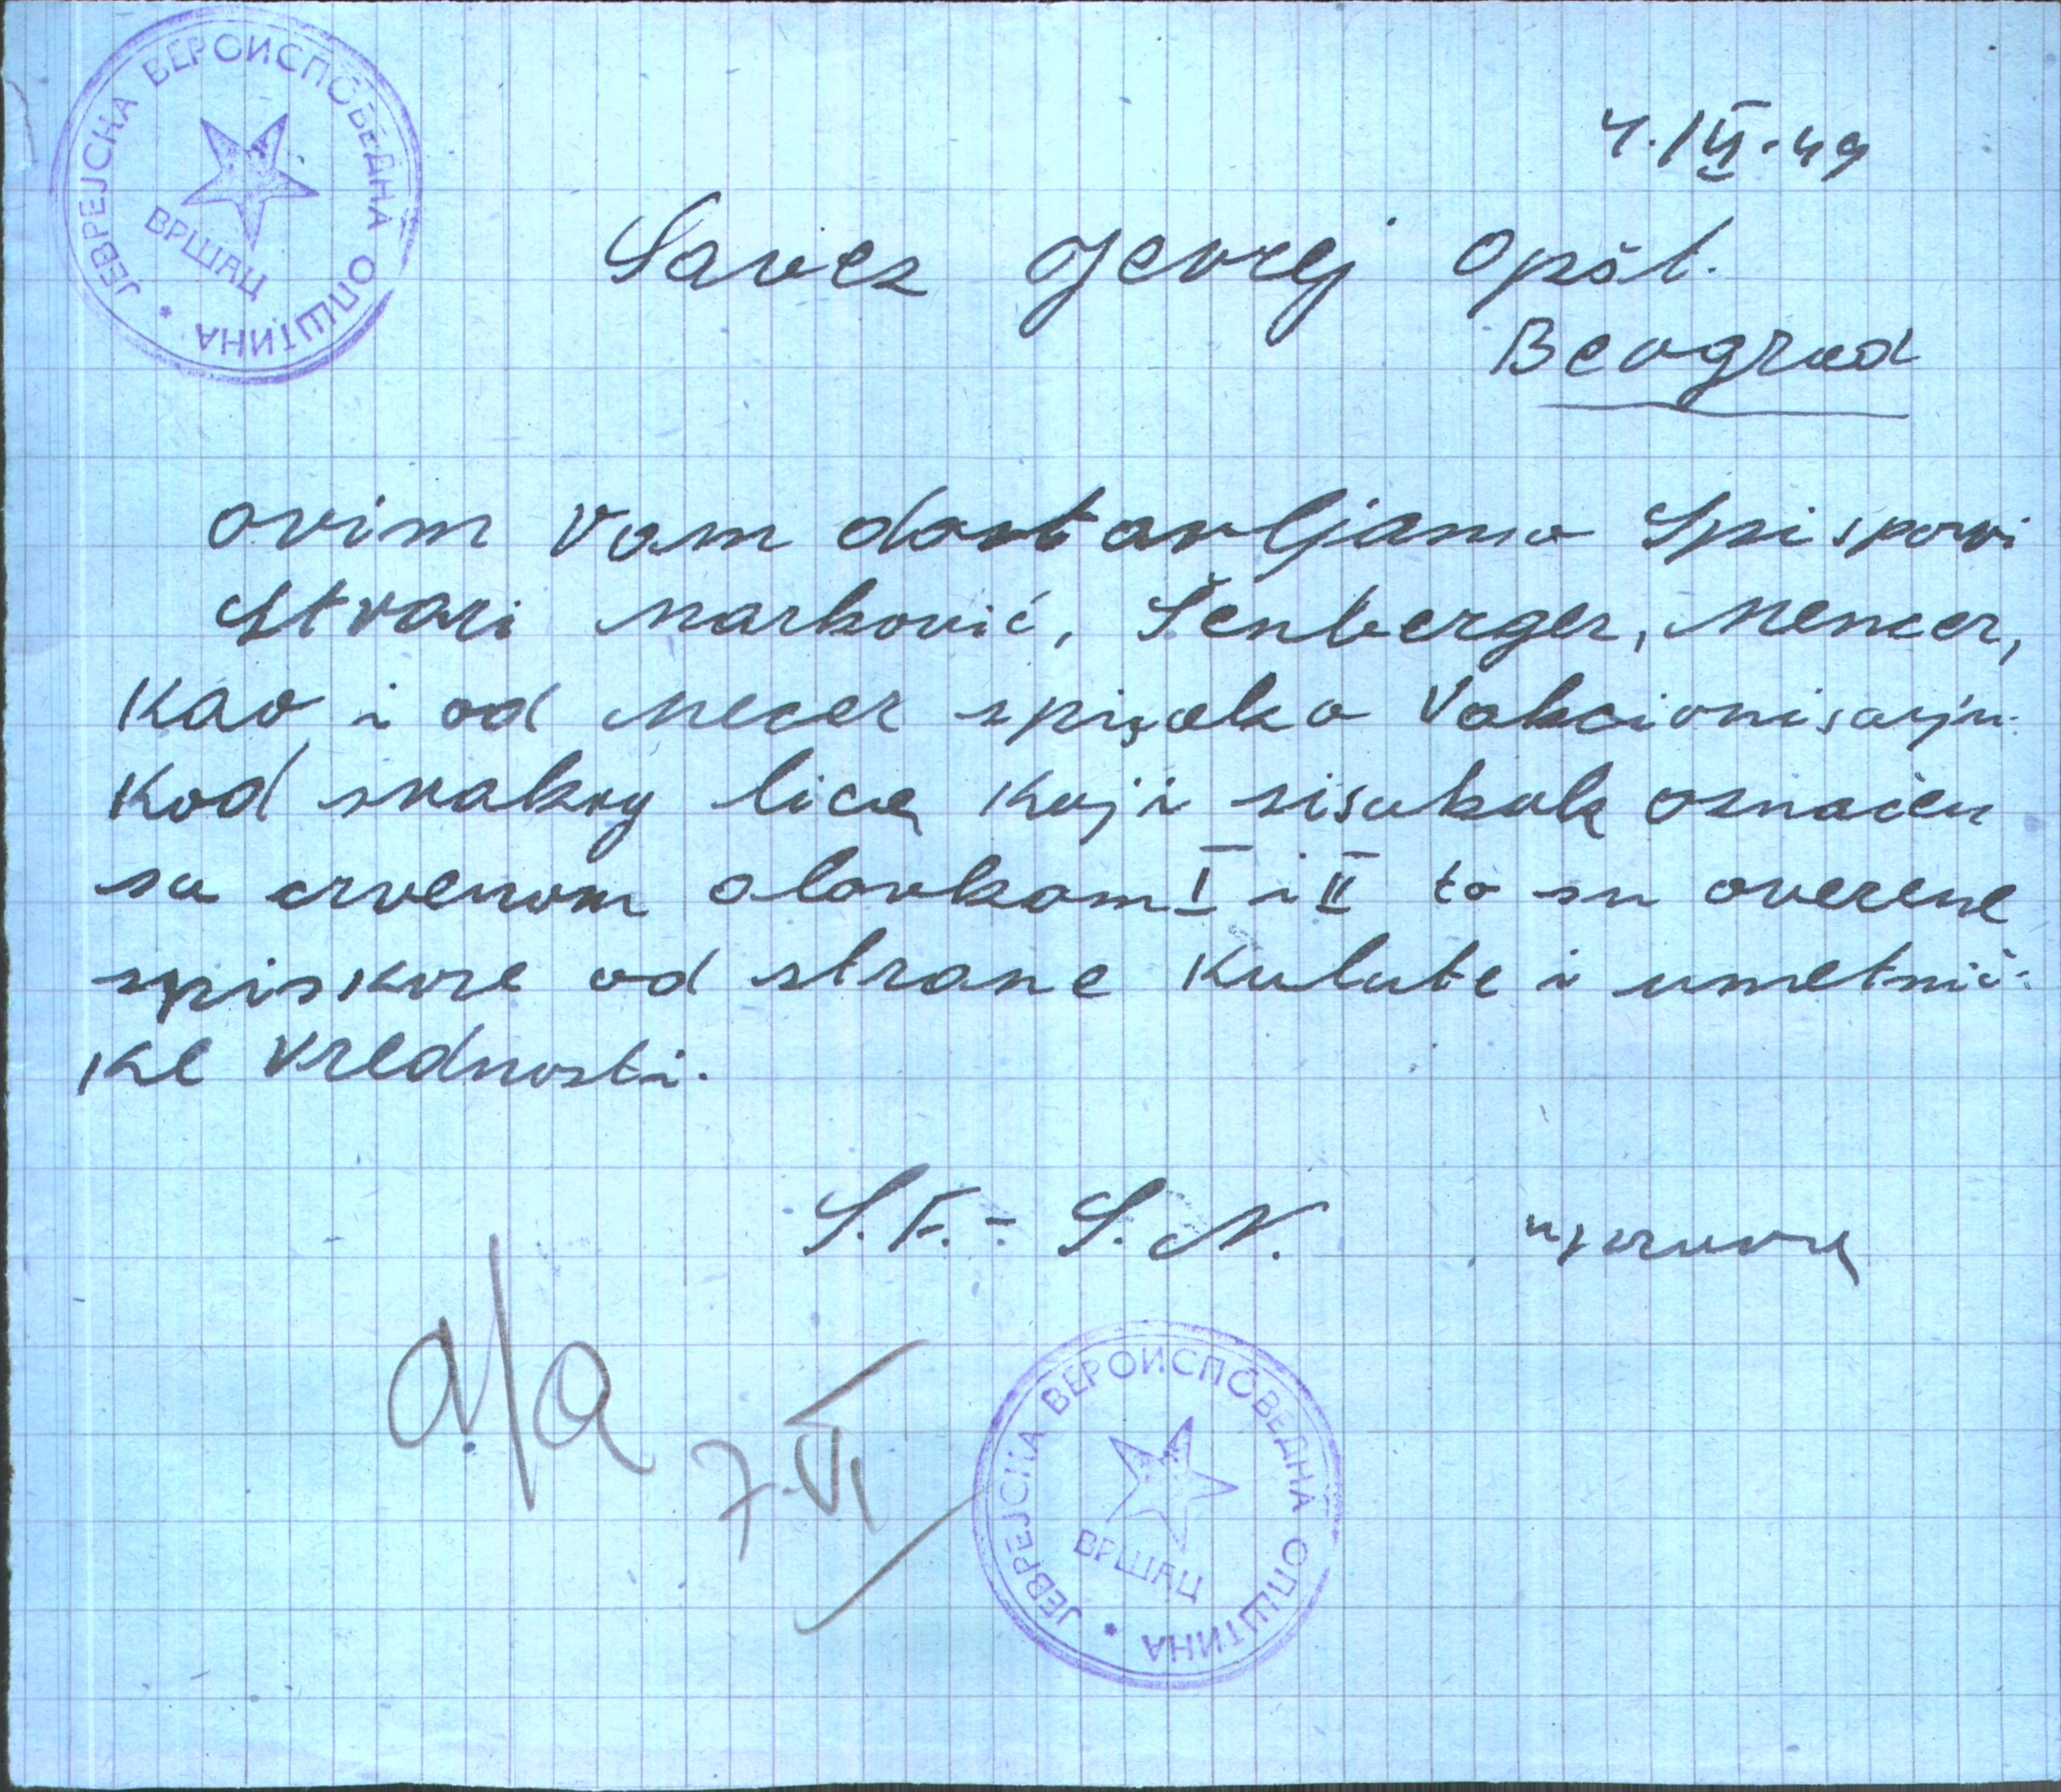 ЈЕВРЕЈСНА ВЕРОИСПОВЕДНА ОПШТИНА
ВРШАЦ
4. VI. 49
Savez Jevrej Opšt.
Beograd
ovim vam dostavljamo Spiskovi
stvari Marković, Šenberger, Mencer,
kao i od Mecer spiska o Vakcionisanju.
Kod svakog lica koji
sa crvenom olovkom I i II to su overene
spiskove od strane Kulute i umetnič-
ke vrednosti.
S.F.- S.N.
a/a
7.VI
ЈЕВРЕЈСНА ВЕРОИСПОВЕДНА ОПШТИНА
ВРШАЦ